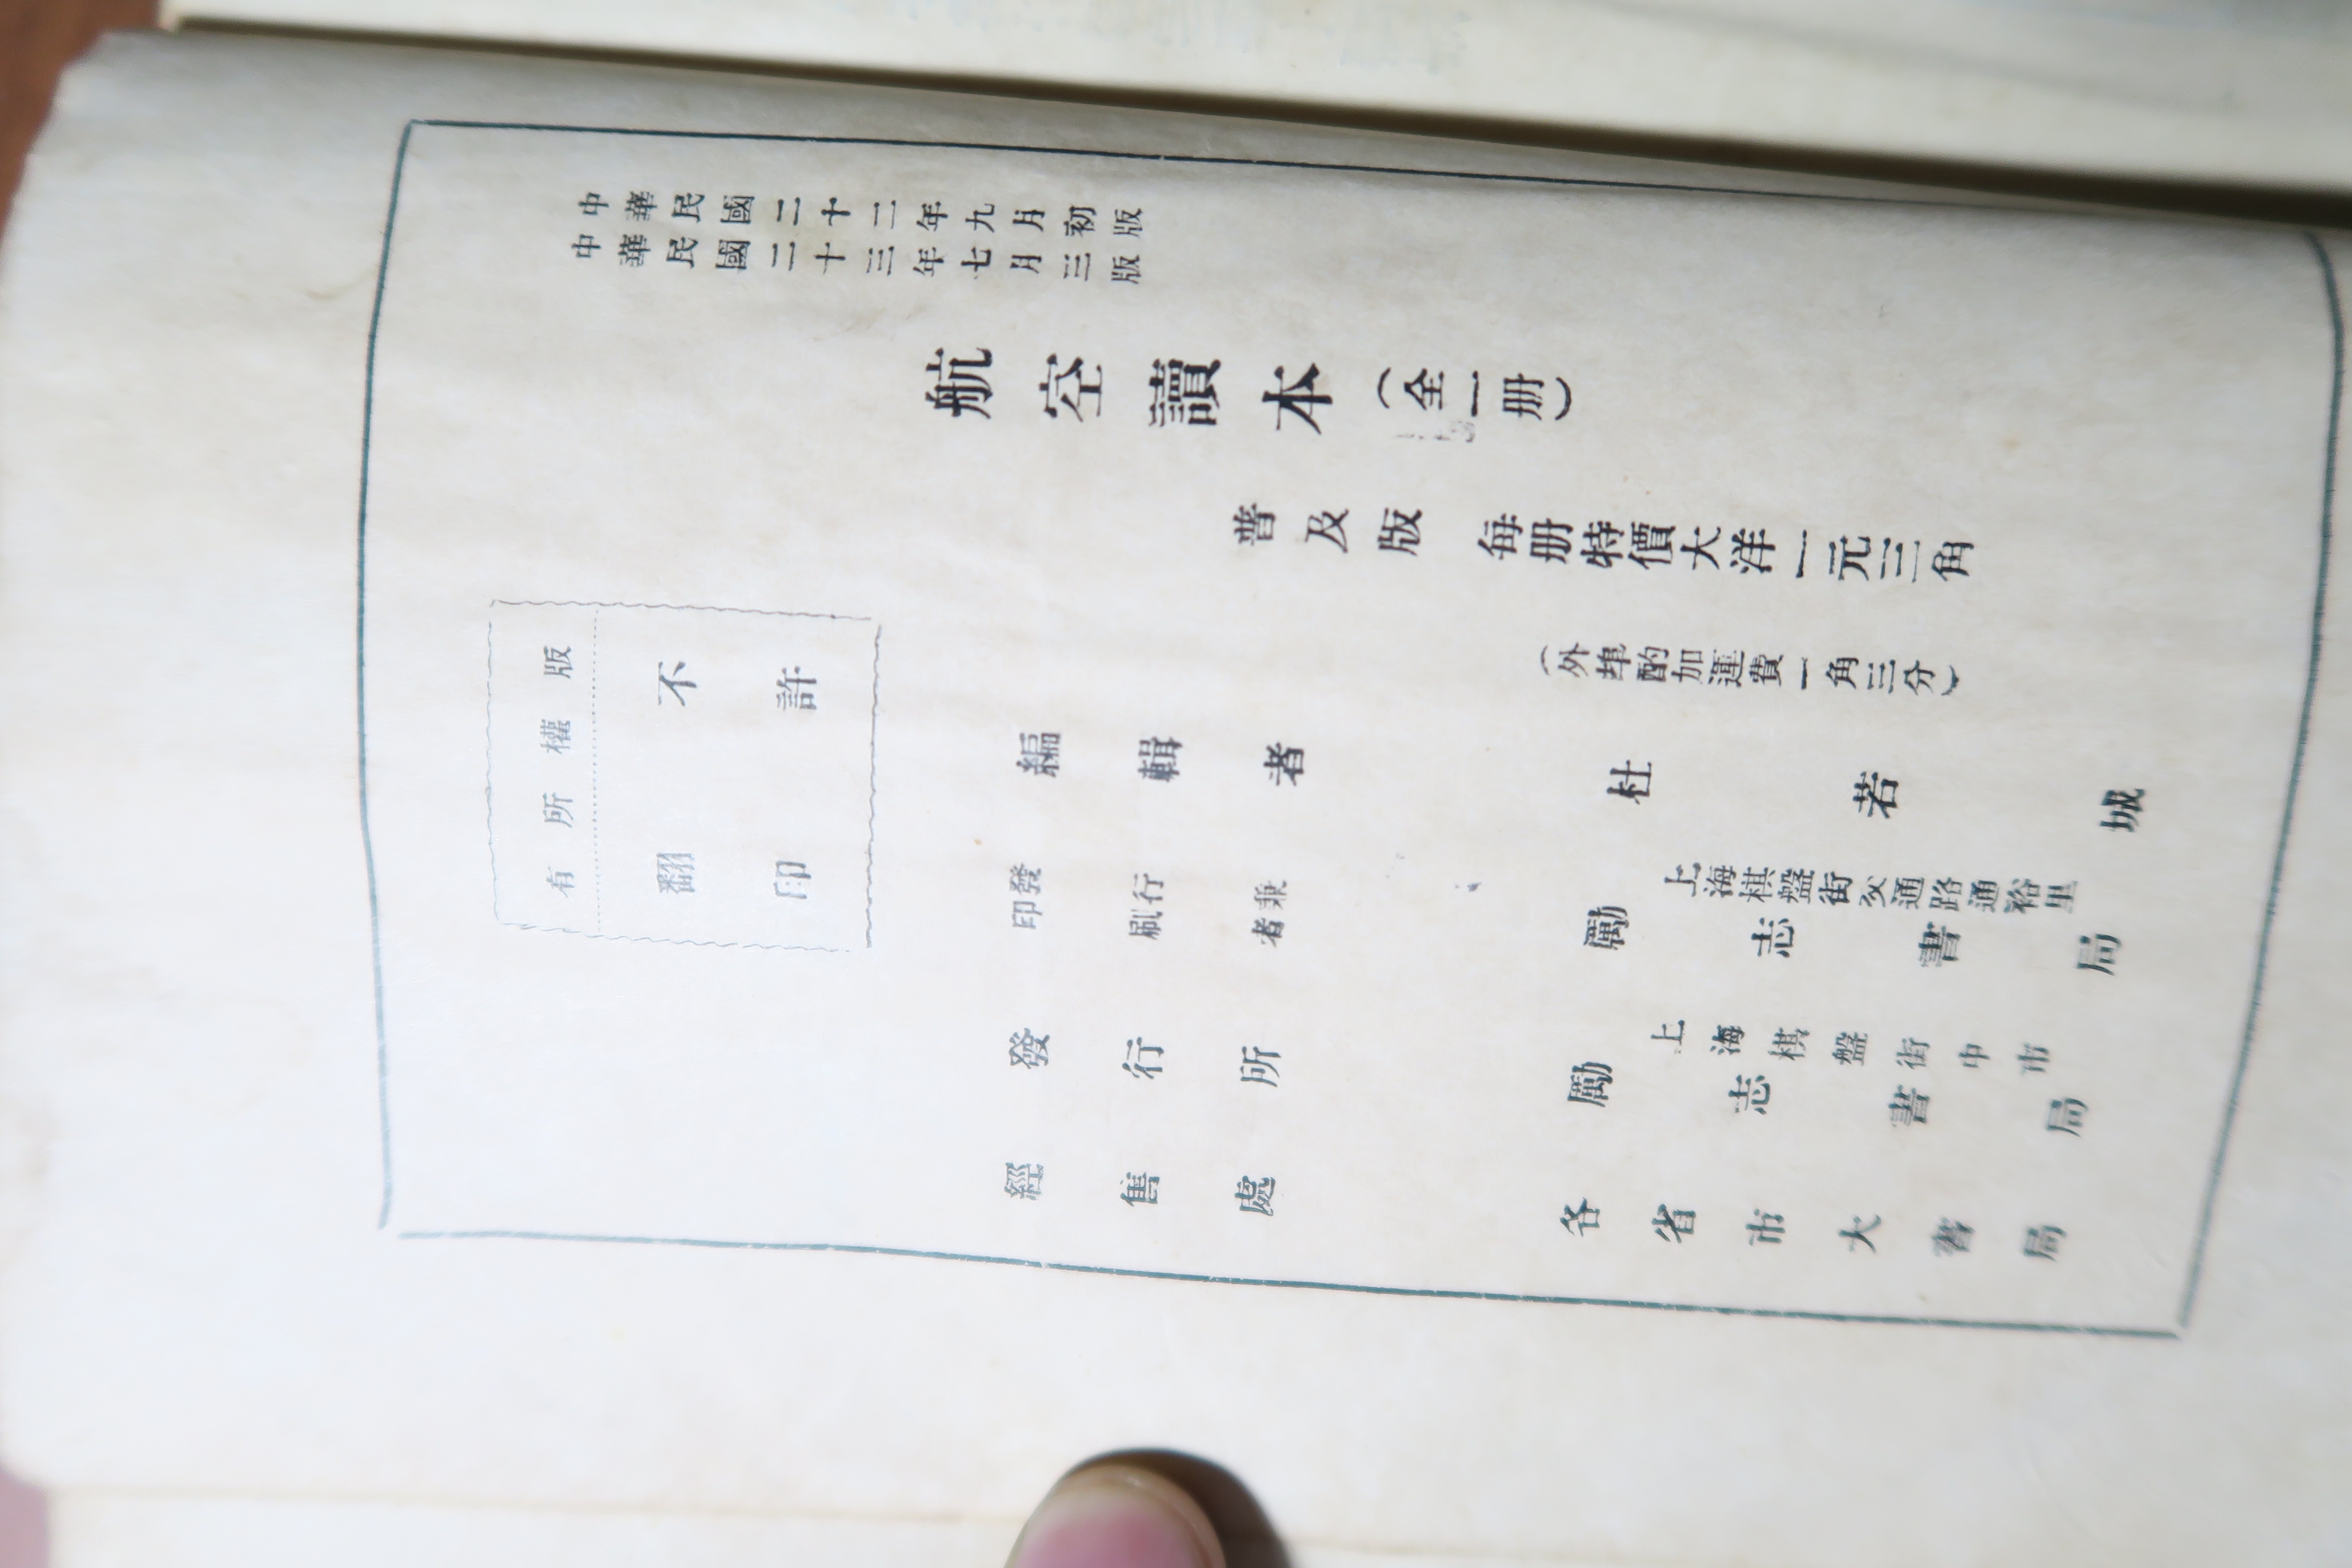 中華民國二十二年九月初版
中華民國二十三年七月三版
航空讀本（全一册）
普及版 每册特價大洋一元三角
（外埠酌加運費一角三分）
編輯者 杜若城
發行兼
印刷者
上海棋盤街交通路通裕里
勵志書局
發行所
上海棋盤街中市
勵志書局
經售處 各省市大書局
版權所有
不許
翻印